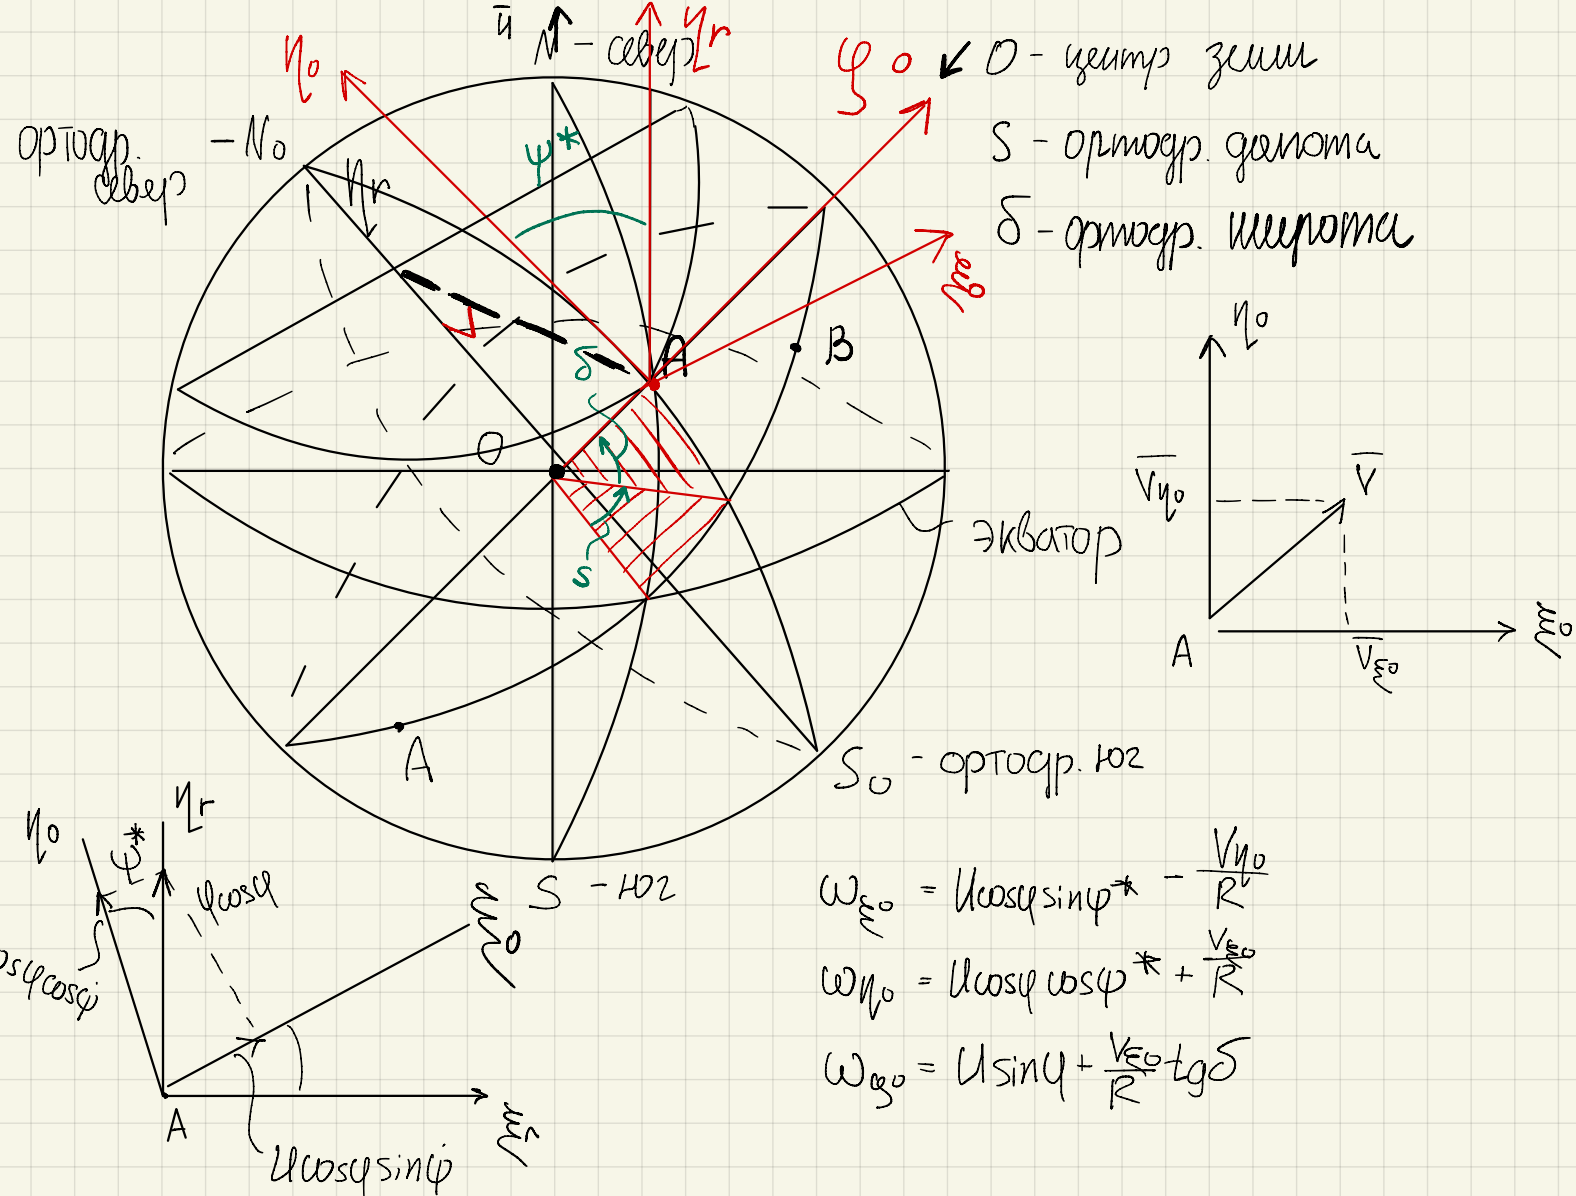 ū
N - север
ηr
η₀
ζ₀
O - центр земли
S - ортодр. долгота
δ - ортодр. широта
ортодр. север
- N₀
ηr
ψ*
ξ₀
δ
A
B
O
S
экватор
A
S₀ - ортодр. юг
S - юг
η₀
V̅η₀
V̅
A
V̅ξ₀
ξ₀
η₀
ψ*
ηr
ξ₀
A
ξr
ucosφsinψ
ωξ₀ = Ucosφsinψ* - Vη₀/R
ωη₀ = Ucosφcosψ* + Vξ₀/R
ωζ₀ = Usinφ + Vξ₀/R tgδ